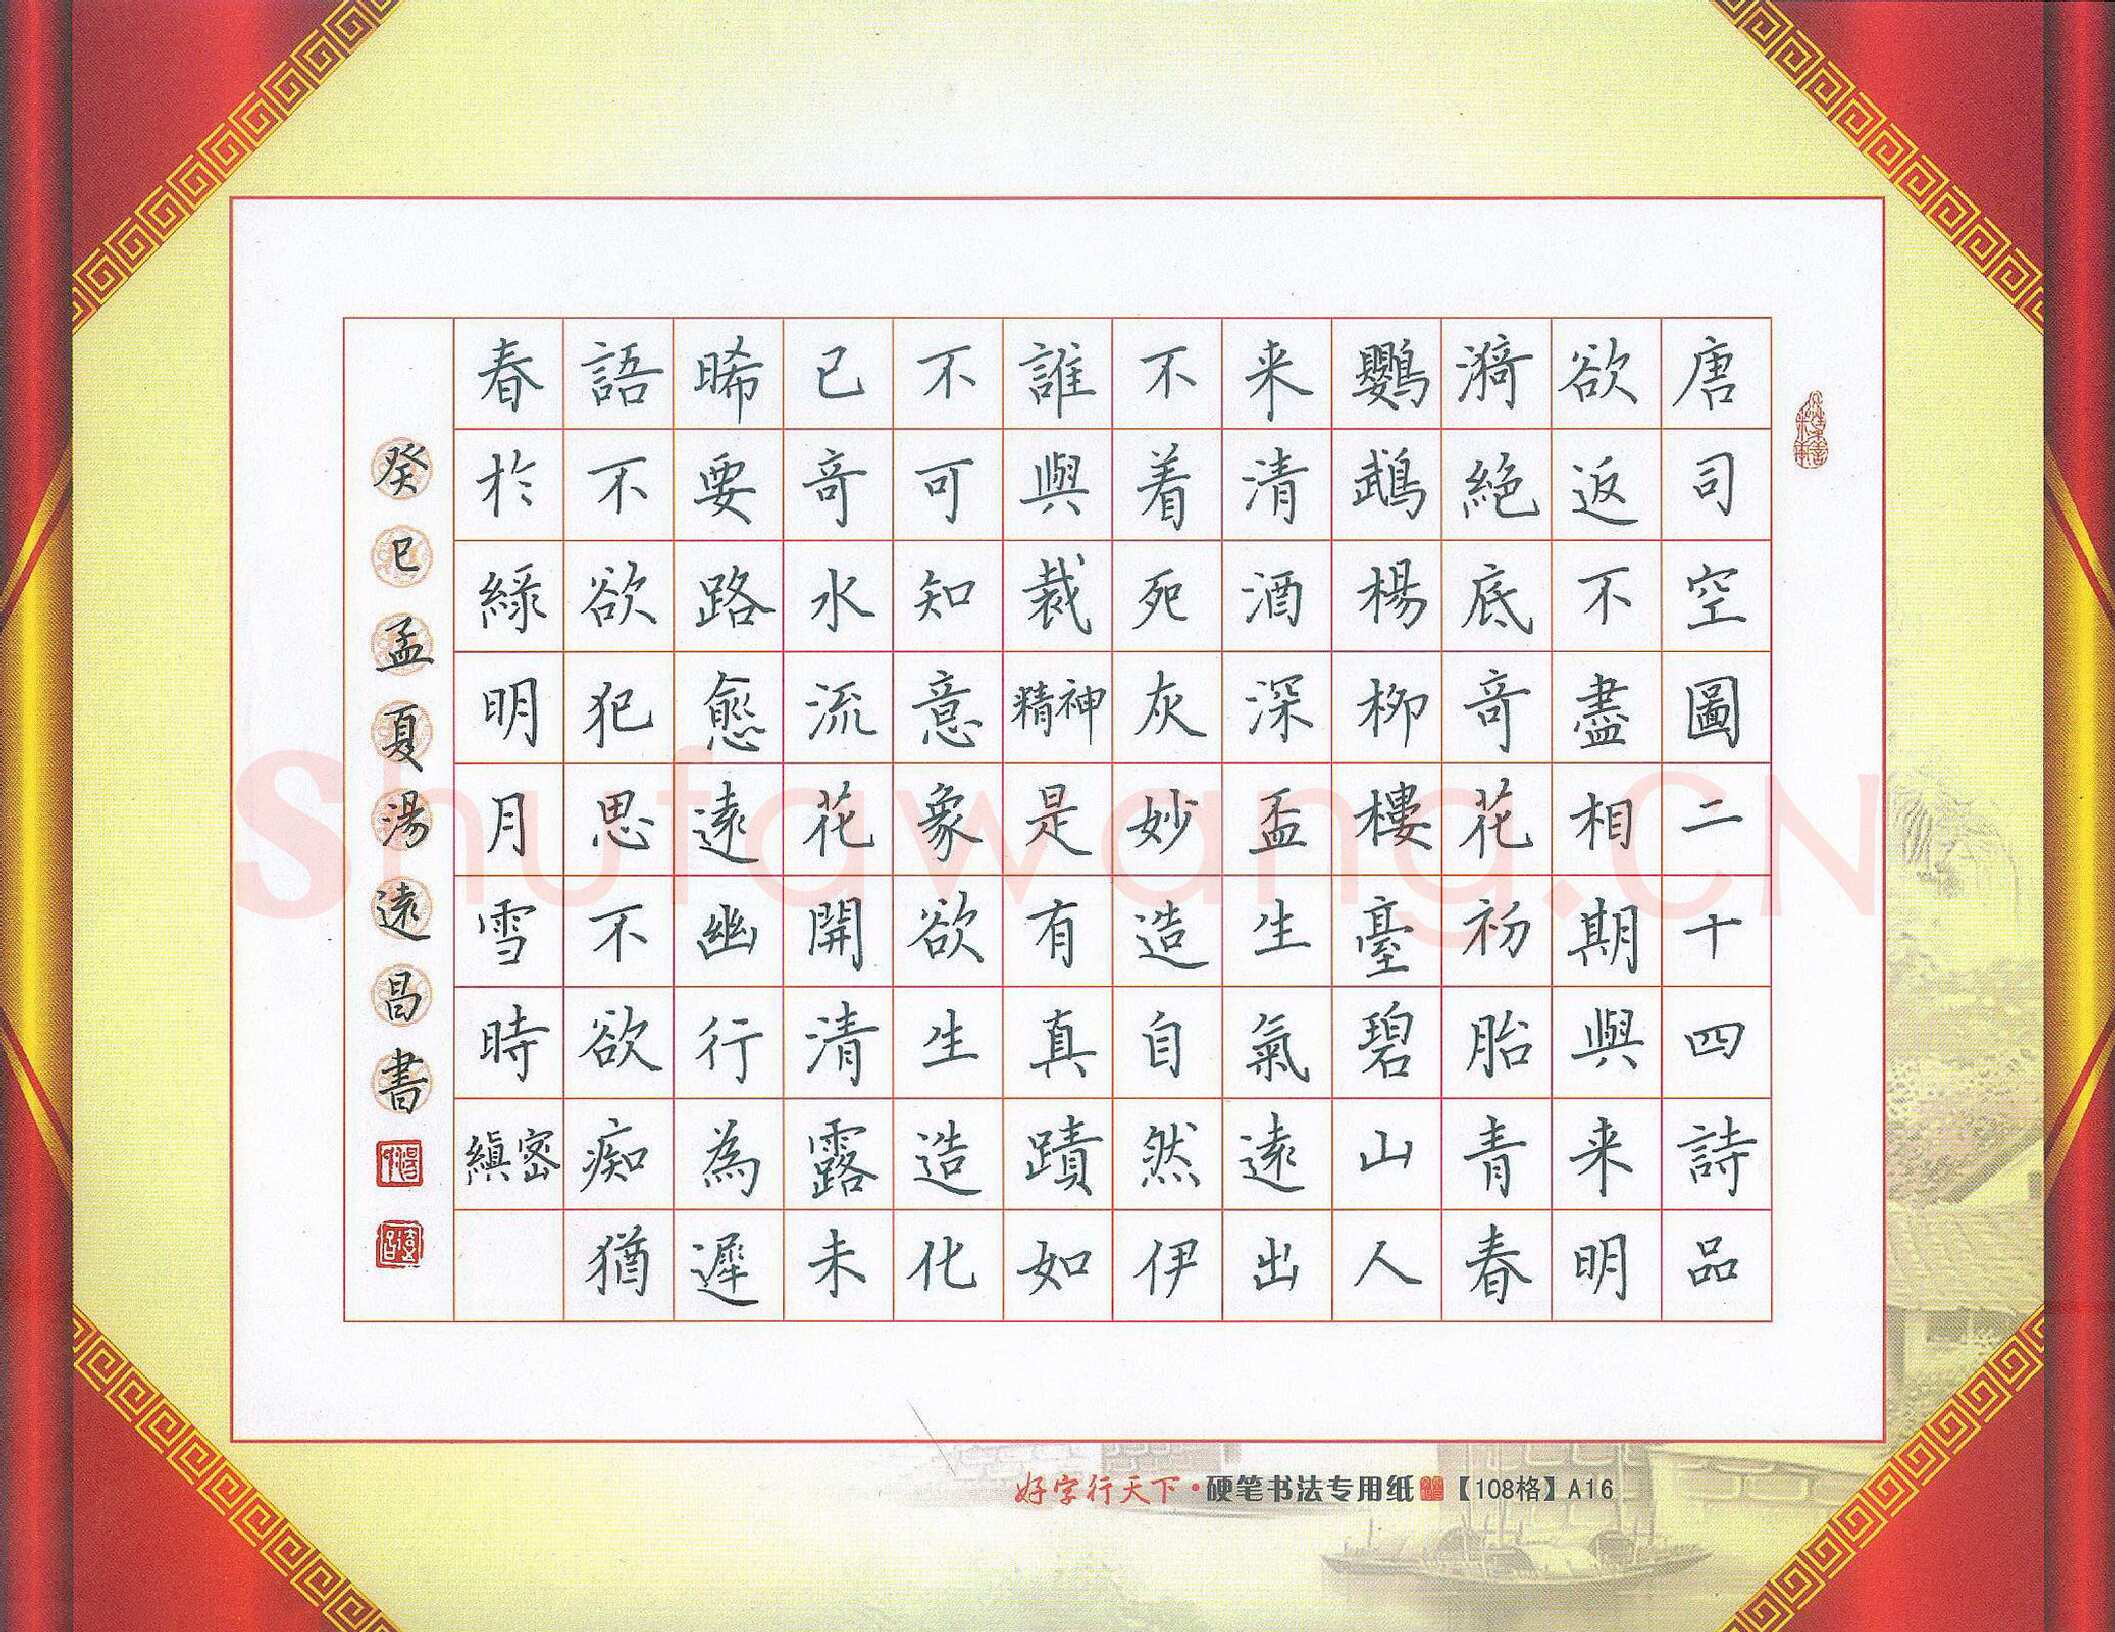 唐司空圖二十四詩品
欲返不盡相期與来明
漪絕底奇花初胎青春
鸚鵡楊柳樓臺碧山人
来清酒深盃生氣遠出
不着死灰妙造自然伊
誰與裁精神是有真蹟如
不可知意象欲生造化
已奇水流花開清露未
晞要路愈遠幽行為遲
語不欲犯思不欲痴猶
春於綠明月雪時縝密
癸巳孟夏湯遠昌書
Shufawang.CN
好字行天下·硬笔书法专用纸【108格】A16